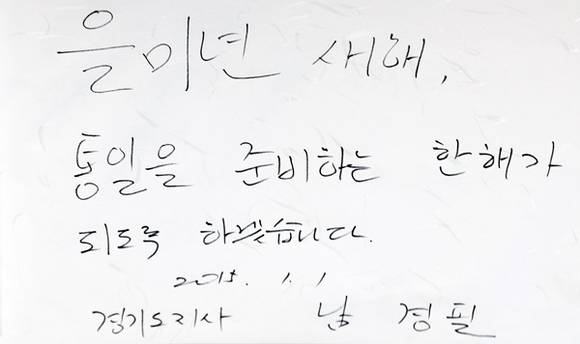 을미년 새해,
통일을 준비하는 한해가
되도록 하겠습니다.
2015. 1. 1
경기도지사 남 경 필